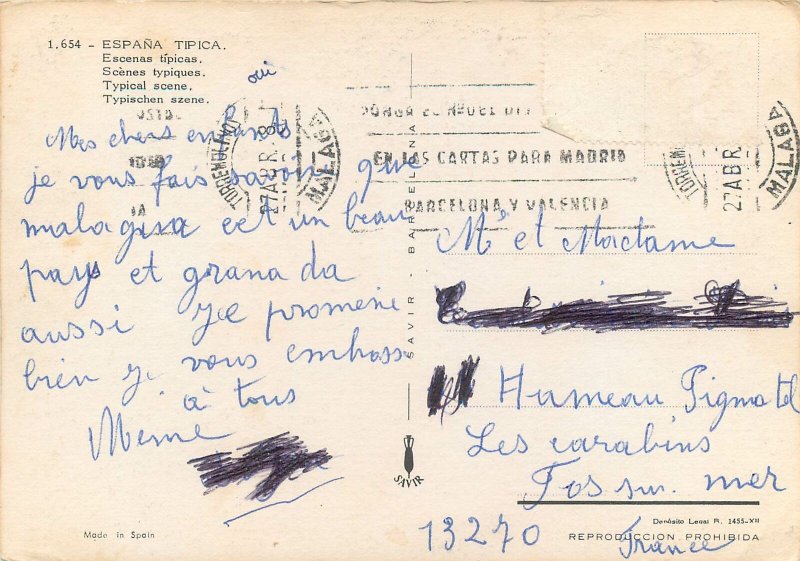 1.654 - ESPAÑA TIPICA.
Escenas típicas.
Scènes typiques.
Typical scene.
Typischen szene.
oui
Mes chers enfants
je vous fais savoir que
malaga est un beau
pays et grana da
aussi je promène
bien je vous embrass
à tous
Mémé
Made in Spain
SAVIR - BARCELONA
SAVIR
TORREMOLINOS
27 ABR. 8
MALAGA
PONGA EL Nº DEL DIT
EN LAS CARTAS PARA MADRID
BARCELONA Y VALENCIA
TORREMO
27 ABR.
MALAGA
Mr et Madame
Hameau Pigmotel
Les carabins
Fos sur mer
13270
France
Depósito Legal B. 1455-XII
REPRODUCCION PROHIBIDA